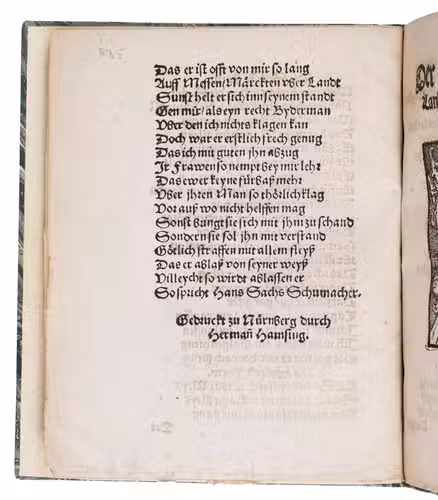 Das er ist offt von mir so lang
Auff Messen/ Märckten vber Landt
Sunst helt er sich inn seynem standt
Gen mir/ als eyn recht Byderman
Vber den ich nichts klagen kan
Doch war er erstlich frech genug
Das ich mit guten jhn abzug
Ir Frawen so nempt bey mir lehr
Das ewer keyne fürbaß mehr
Vber jhren Man so thörlich klag
Vor auß wo nicht helffen mag
Sonst bringt sie sich mit jhm zu schand
Sondern sie sol jhn mit verstand
Götlich straffen mit allem fleyß
Das er ablaß von seyner weyß
Villeycht so wirdt ablassen er
So spricht Hans Sachs Schumacher.
Gedruckt zu Nürnberg durch
Herman̄ Hamsing.
Der